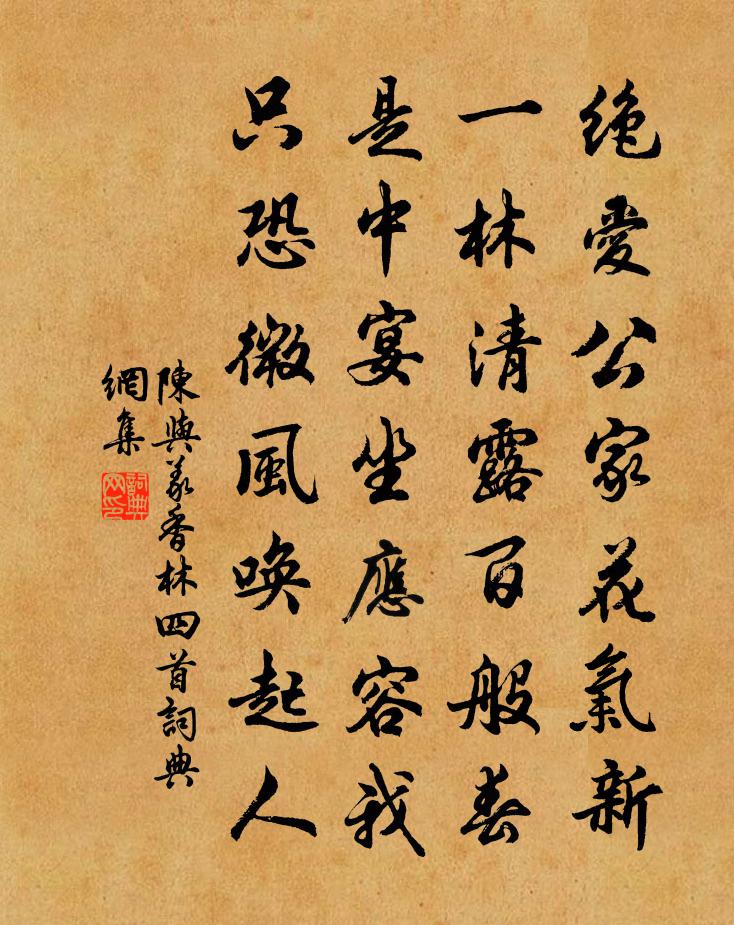 絶愛公家花氣新
一林清露百般春
是中宴坐應容我
只恐微風喚起人
陳與義香林四首詞典
網集
詞典
网印